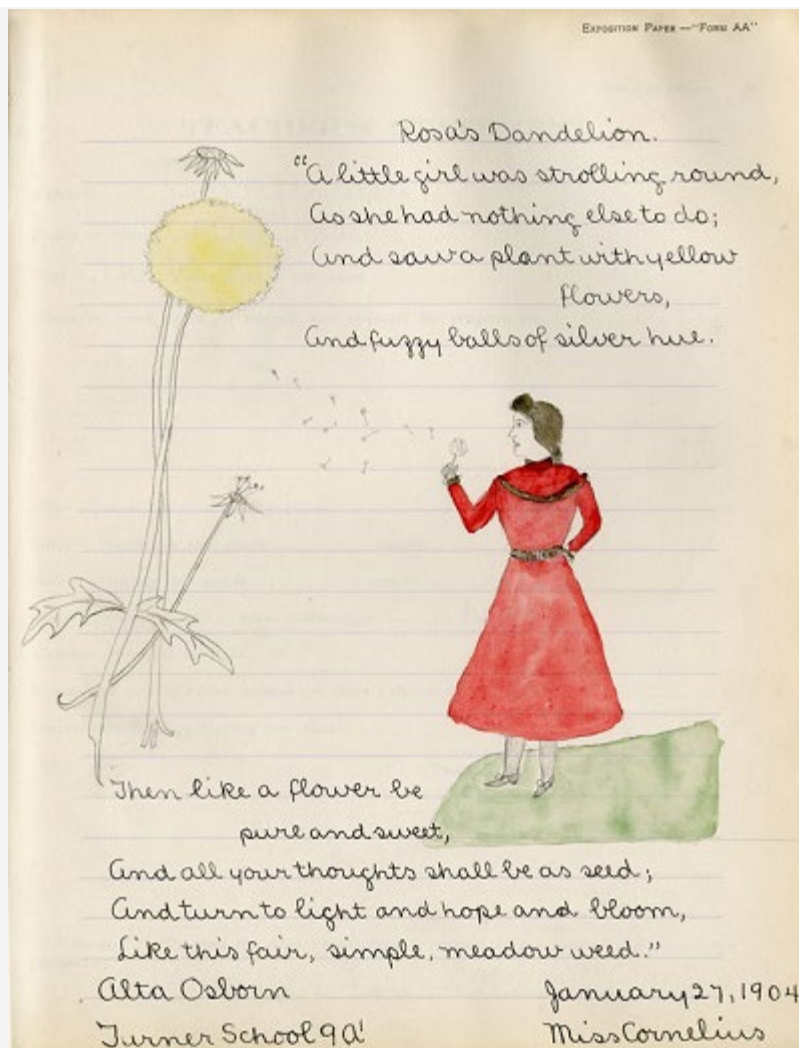 Exposition Paper — "Form AA"
Rosa's Dandelion.
"A little girl was strolling round,
As she had nothing else to do;
And saw a plant with yellow
flowers,
And fuzzy balls of silver hue.
Then like a flower be
pure and sweet,
And all your thoughts shall be as seed;
And turn to light and hope and bloom,
Like this fair, simple, meadow weed."
Alta Osborn January 27, 1904
Turner School 9A' Miss Cornelius